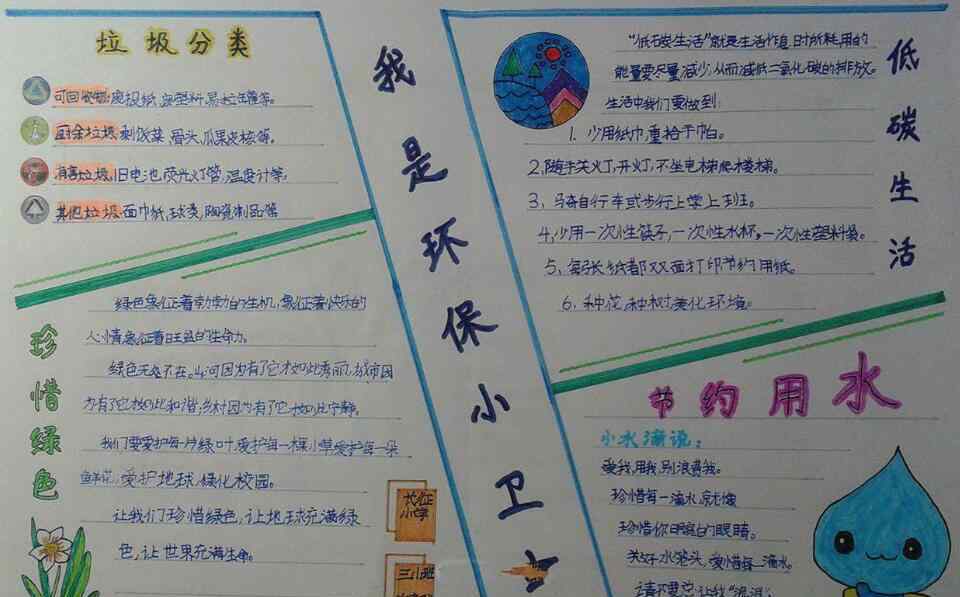 垃圾分类
可回收物:废报纸,废塑料,易拉罐等。
厨余垃圾:剩饭菜、骨头,瓜果皮核等。
有害垃圾,旧电池,荧光灯管,温度计等。
其他垃圾:面巾纸,球类,陶瓷制品等
珍惜绿色
绿色象征着勃勃的生机,象征着快乐的
心情,象征着旺盛的生命力。
绿色无处不在。山河因为有了它才如此秀丽,城市因
为有了它才如此和谐,乡村因为有了它才如此宁静。
我们要爱护每一片绿叶,爱护每一棵小草,爱护每一朵
鲜花,爱护地球,绿化校园。
让我们珍惜绿色,让地球充满绿
色,让世界充满生命。
长征
小学
三小班
我是环保小卫士
低碳生活
"低碳生活"就是生活作息时所耗用的
能量要尽量减少,从而减低二氧化碳的排放。
生活中我们要做到:
1、少用纸巾,重拾手帕。
2,随手关灯,开灯,不坐电梯爬楼梯。
3、骑自行车或步行上学上班。
4,少用一次性筷子,一次性水杯,一次性塑料袋。
5、每张纸都双面打印节约用纸。
6、种花,种树,美化环境。
节约用水
小水滴说:
爱我,用我,别浪费我。
珍惜每一滴水,就像
珍惜你明亮的眼睛。
关好水笼头,爱惜每一滴水。